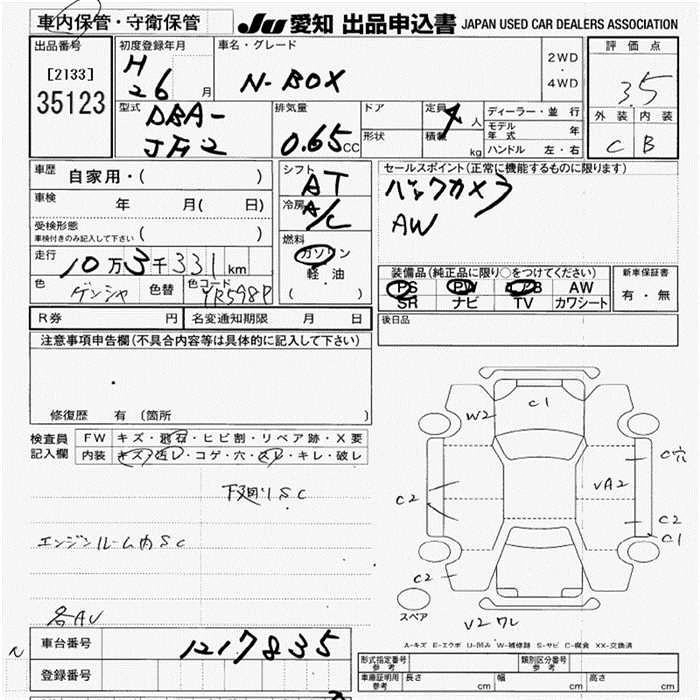 車内保管・守衛保管
Ju 愛知 出品申込書 JAPAN USED CAR DEALERS ASSOCIATION
出品番号
[2133]
35123
初度登録年月
H
26 月
車名・グレード
N-BOX
2WD
・
4WD
評価点
3.5
外装 内装
C B
型式
DBA-
JF2
排気量
0.65 CC
ドア
形状
定員
4 人
積載
kg
ディーラー・並行
モデル年式 年
ハンドル 左・右
車歴
自家用・( )
車検
年 月( 日)
受検形態
車検付きのみ記入して下さい ( )
走行
10万3千331km
色
ゲンシャ
色替
色コード
YR598P
シフト
AT
冷房
A/C
燃料
ガソリン
軽・油
( )
セールスポイント(正常に機能するものに限ります)
バックカメラ
AW
装備品(純正品に限り○をつけてください)
PS PW エアB AW
SR ナビ TV カワシート
新車保証書
有・無
R券 円
名変通知期限 月 日
後日品
注意事項申告欄(不具合内容等は具体的に記入して下さい)
修復歴 有 (箇所 )
検査員
記入欄
FW キズ・飛石・ヒビ割・リペア跡・X要
内装 キズ・汚レ・コゲ・穴・スレ・キレ・破レ
下廻りSC
エンジンルーム内SC
各AU
W2
C1
C穴
VA2
C2
C2
C1
C2
スペア
V2ワレ
A-キズ E-エクボ U-凹み W-補修跡 S-サビ C-腐食 XX-交換済
車台番号
1217835
登録番号
型式指定番号
参考
類別区分番号
参考
車庫証明用
参考
長さ cm
幅 cm
高さ cm